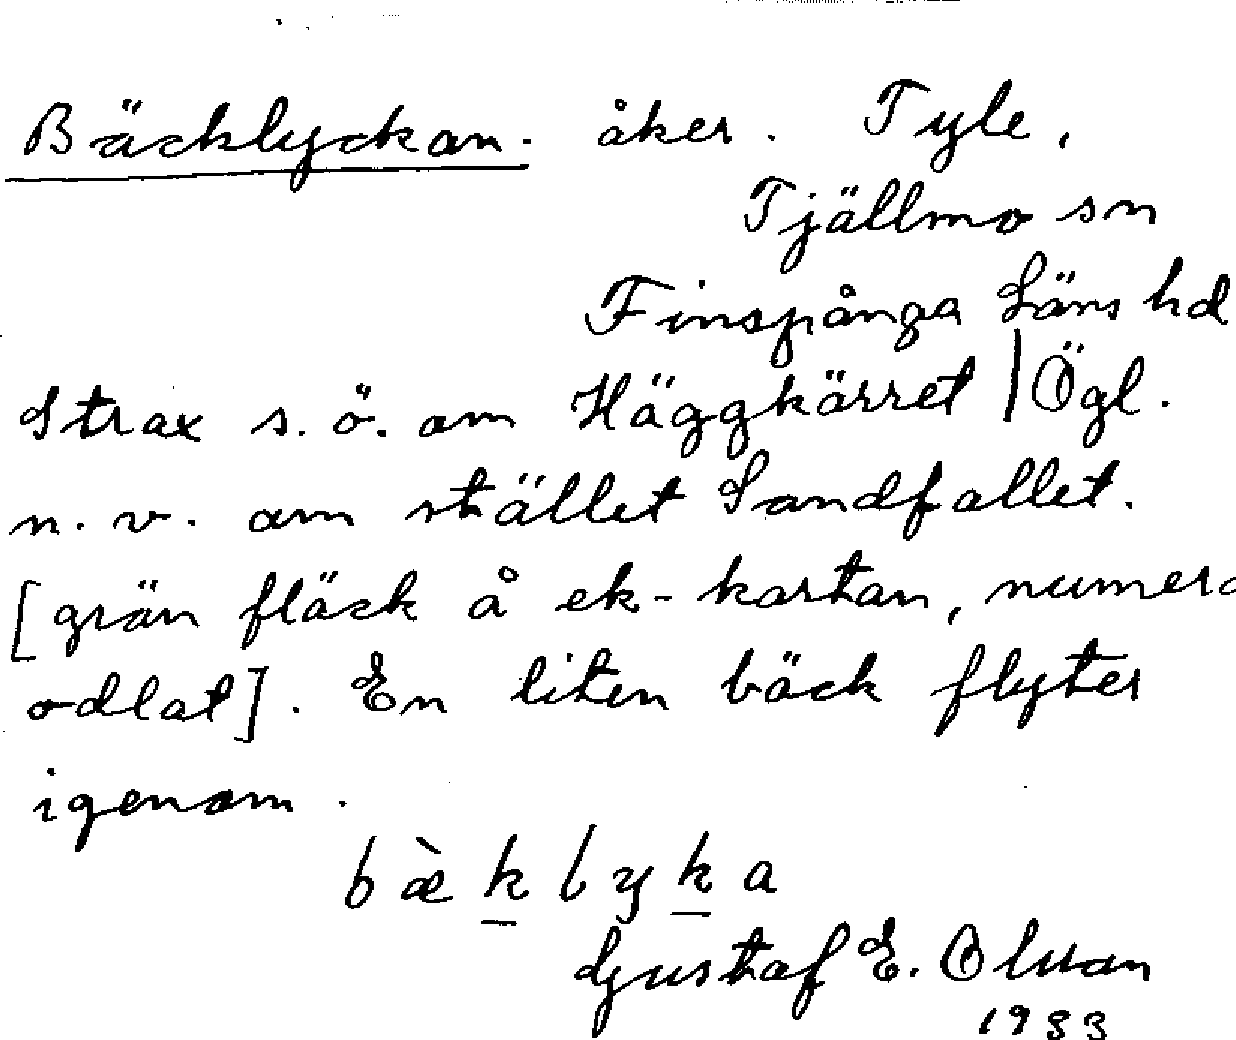 Bäcklyckan. åker. Tyle,
Tjällmo sn
Finspånga Läns hd
Strax s. ö. om Häggkärret | Ögl.
n. v. om stället Sandfallet.
[grön fläck å ek-kartan, numera
odlat]. En liten bäck flyter
igenom.
bæ̀k̲lyk̲a
Gustaf E. Olsson
1933